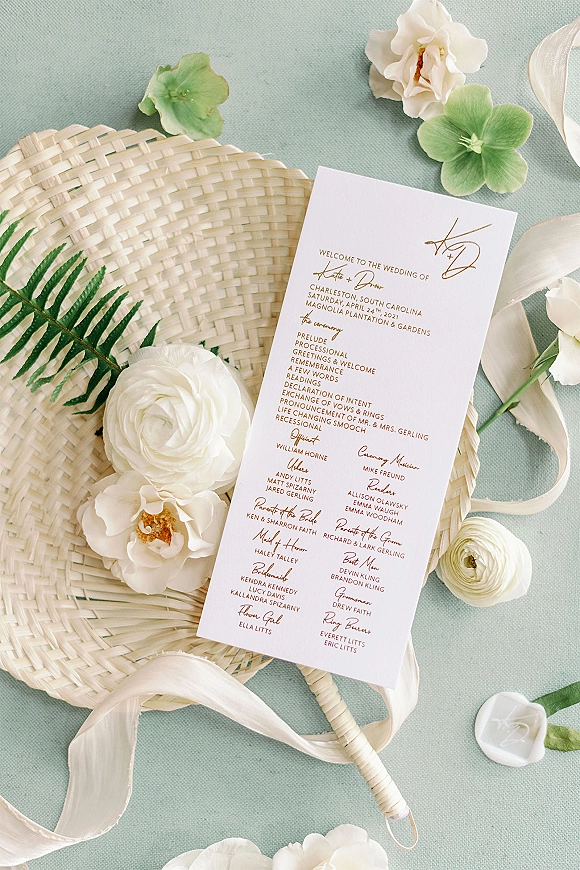 K + D
WELCOME TO THE WEDDING OF
Katie + Drew
CHARLESTON, SOUTH CAROLINA
SATURDAY, APRIL 24TH, 2021
MAGNOLIA PLANTATION & GARDENS
the ceremony
PRELUDE
PROCESSIONAL
GREETINGS & WELCOME
REMEMBRANCE
A FEW WORDS
READINGS
DECLARATION OF INTENT
EXCHANGE OF VOWS & RINGS
PRONOUNCEMENT OF MR. & MRS. GERLING
LIFE CHANGING SMOOCH
RECESSIONAL
Officiant
WILLIAM HORNE
Ushers
ANDY LITTS
MATT SPIZARNY
JARED GERLING
Parents of the Bride
KEN & SHARRON FAITH
Maid of Honor
HALEY TALLEY
Bridesmaids
KENDRA KENNEDY
LUCY DAVIS
KALLANDRA SPIZARNY
Flower Girl
ELLA LITTS
Ceremony Musician
MIKE FREUND
Readers
ALLISON OLAWSKY
EMMA WAUGH
EMMA WOODHAM
Parents of the Groom
RICHARD & LARK GERLING
Best Men
DEVIN KLING
BRANDON KLING
Groomsman
DREW FAITH
Ring Bearers
EVERETT LITTS
ERIC LITTS
K + D